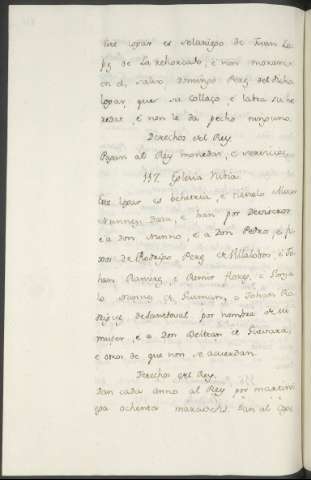 Este logar es solariego de Juan Lo-
pz de La rehorcado, e non moraua
en el, salvo, Domingo Perez del dicho
logar, que su collaço, e labra su he-
redat, e non le da pecho ninguno.
Derechos del Rey
Pagan al Rey monedas, e servicios.
337. Iglesia Rubia
Este logar es behetria, e tienelo Nunno
Nunnez Daza, e han por Devisceros
e a Don Nunno, e a Don Pedro, e fi-
xos de Rodrigo Perez de Villalobos, e Jo-
han Ramirez, e Remir Florez, e Gonza-
lo Nunnez de Guzman, e Johan Ro-
driguez de Sandoual por nombre de su
muger, e a Don Beltran de Guevara,
e otros de que non se acuerdan.
Derechos del Rey.
Dan cada anno al Rey por martini-
ega ochenta maravedis